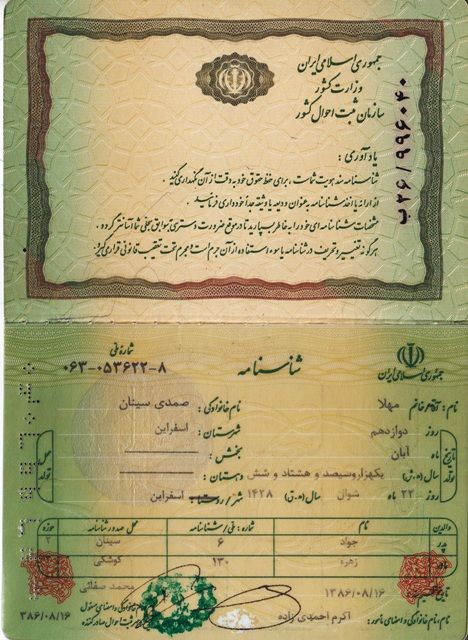 جمهوری اسلامی ایران
وزارت کشور
سازمان ثبت احوال کشور
ب۲۶/۹۹۶۰۴۰
یادآوری:
شناسنامه سند هویت شماست، برای حفظ حقوق خود به دقت از آن نگهداری کنید.
از ارائه یا اخذ شناسنامه به عنوان ودیعه یا وثیقه جداً خودداری فرمایید.
مشخصات شناسنامه ای خود را به خاطر بسپارید تا در موقع ضرورت دسترسی به سوابق سجلی شما آسانتر گردد.
هرگونه تغییر و تحریف در شناسنامه یا سوء استفاده از آن جرم است و مجرم تحت تعقیب قانونی قرار می گیرد.
جمهوری اسلامی ایران
شناسنامه
شماره ملی
۰۶۳-۰۵۳۶۲۲-۸
نام: آقای/خانم مهلا نام خانوادگی: صمدی سینان
تاریخ تولد روز دوازدهم شهرستان: اسفراین محل تولد
ماه آبان بخش:
سال (ه.ش) یکهزار و سیصد و هشتاد و شش دهستان:
روز ۲۲ ماه شوال سال (ه.ق) ۱۴۲۸ شهر/روستا: اسفراین
والدین نام شماره: ملی/شناسنامه محل صدور شناسنامه حوزه
پدر جواد ۶ سینان ۲
مادر زهره ۱۳۰ کوشکی
۱۳۸۶/۰۸/۱۶ محمد صفائی
نام، نام خانوادگی و امضای مأمور: اکرم احمدی زاده
نام خانوادگی و امضای مسئول
ثبت احوال صادرکننده
۳۸۶/۰۸/۱۶